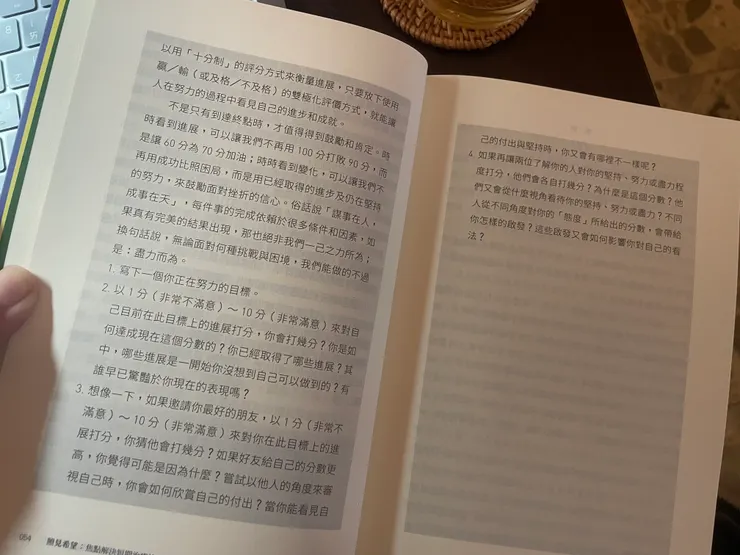 以用「十分制」的評分方式來衡量進展，只要放下使用
贏／輸（或及格／不及格）的雙極化評價方式，就能讓
人在努力的過程中看見自己的進步和成就。
不是只有到達終點時，才值得得到鼓勵和肯定。時
時看到進展，可以讓我們不再用100分打敗90分，而
是讓60分為70分加油；時時看到變化，可以讓我們不
再用成功比照困局，而是用已經取得的進步及仍在堅持
的努力，來鼓勵面對挫折的信心。俗話說「謀事在人，
成事在天」，每件事的完成依賴於很多條件和因素，如
果真有完美的結果出現，那也絕非我們一己之力所為；
換句話說，無論面對何種挑戰與困境，我們能做的不過
是：盡力而為。
1. 寫下一個你正在努力的目標。
2. 以1分（非常不滿意）～10分（非常滿意）來對自
己目前在此目標上的進展打分，你會打幾分？你是如
何達成現在這個分數的？你已經取得了哪些進展？其
中，哪些進展是一開始你沒想到自己可以做到的？有
誰早已驚豔於你現在的表現嗎？
3. 想像一下，如果邀請你最好的朋友，以1分（非常不
滿意）～10分（非常滿意）來對你在此目標上的進
展打分，你猜他會打幾分？如果好友給自己的分數更
高，你覺得可能是因為什麼？嘗試以他人的角度來審
視自己時，你會如何欣賞自己的付出？當你能看見自
064
擁見希望：焦點解決短期
己的付出與堅持時，你又會有哪裡不一樣呢？
4. 如果再讓兩位了解你的人對你的堅持、努力或盡力程
度打分，他們會各自打幾分？為什麼是這個分數？他
們又會從什麼視角看待你的堅持、努力或盡力？不同
人從不同角度對你的「態度」所給出的分數，會帶給
你怎樣的啟發？這些啟發又會如何影響你對自己的看
法？